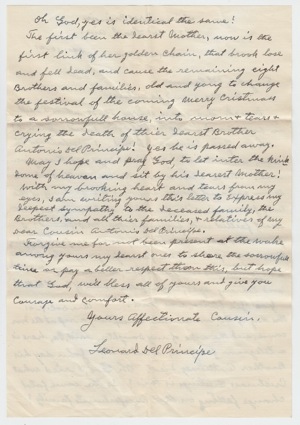 Oh God, yes is identical the same!
The first been the dearst Mother, now is the
first link of her golden chain, that brook lose
and fell dead, and cause the remaining eight
Brothers and families, old and yong to change
the festival of the coming Merry Cristmas
to a sorrowfull house, into morn & tears &
crying the death of thier dearst Brother
Antonio Del Principe! Yes he is passed away.
May I hope and pray God to let inter the
dome of heaven and sit by his dearest Mother!
With my brooking heart and tears from my
eyes, I am writing yours this letter to express my
deepest sympathy to the deceased family, the
Brothers, and all thier families, & relatives of my
dear Cousin Antonio Del Principe.
Forgive me for not been present at the wake
among yours my dearst ones to share the sorrowfull
time or pay a better respect than this, but hope
that God, will bless all of yours and give you
Courage and comfort.
Yours Affectionate Cousin,
Leonard Del Principe